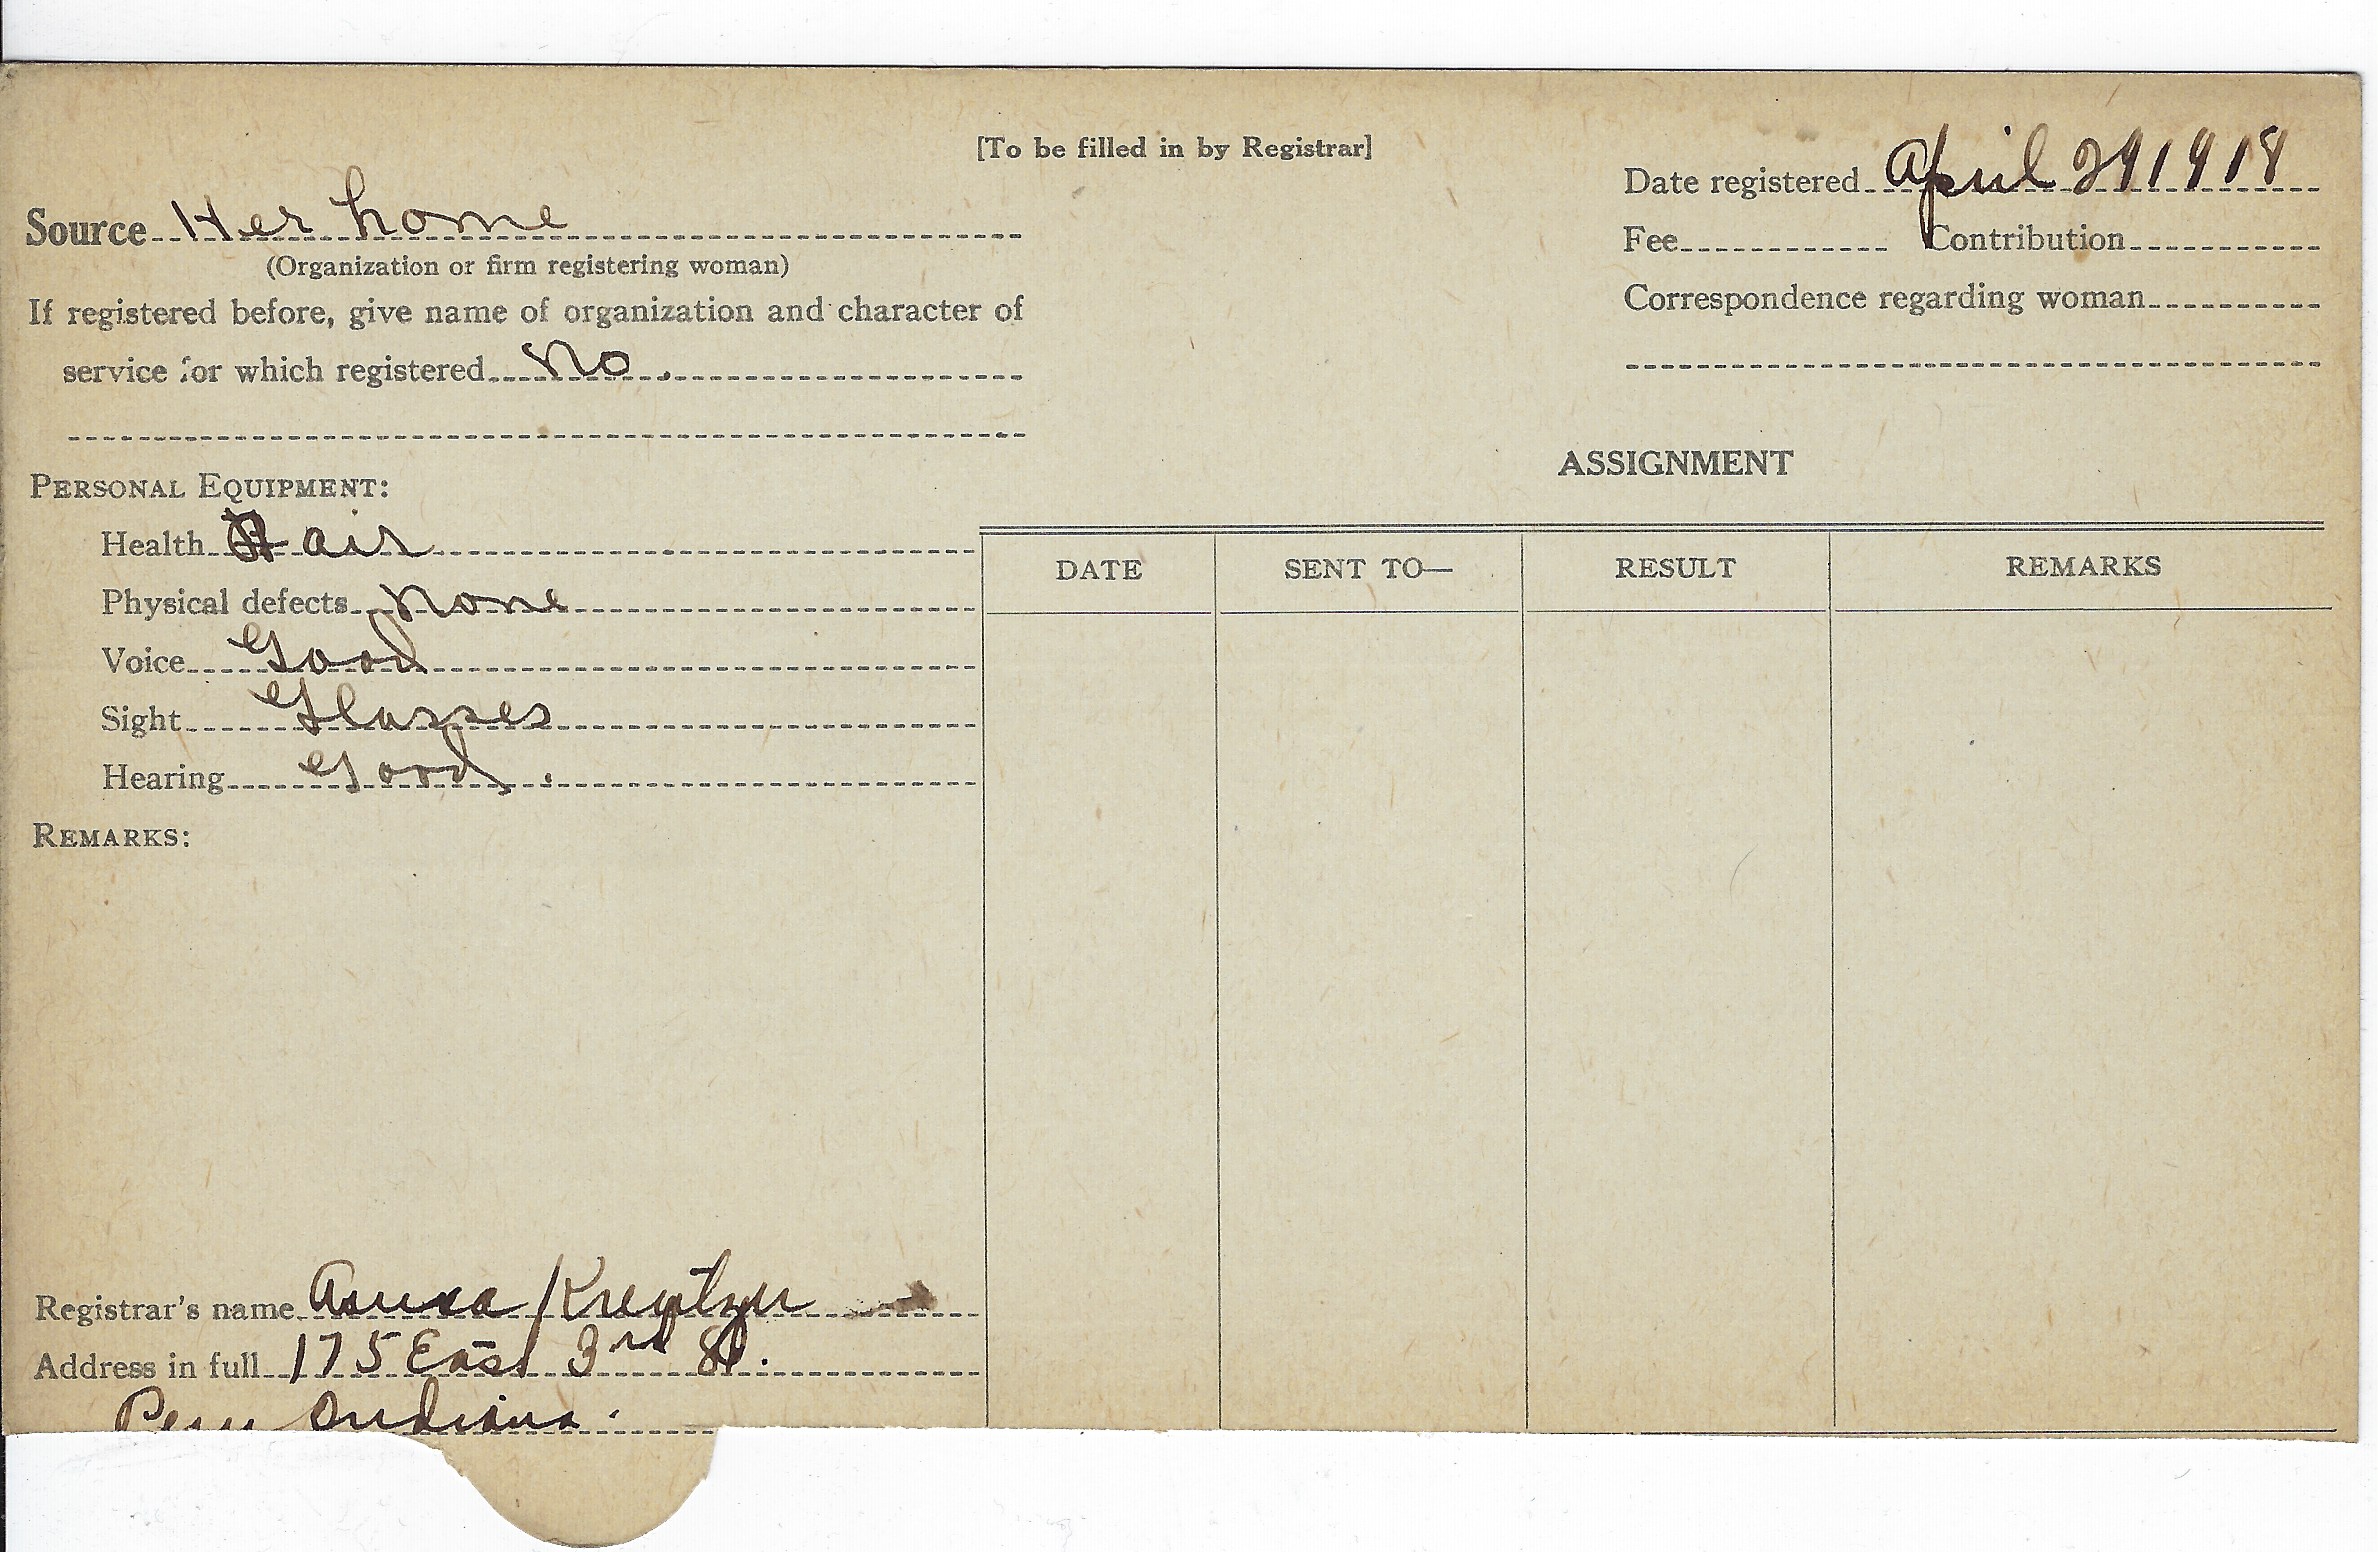 [To be filled in by Registrar]
Date registered April 29 1918
Source Her home
Fee Contribution
(Organization or firm registering woman)
If registered before, give name of organization and character of
Correspondence regarding woman
service for which registered No.
ASSIGNMENT
PERSONAL EQUIPMENT:
Health Fair
Physical defects None
Voice Good
Sight Glasses
Hearing Good.
DATE SENT TO— RESULT REMARKS
REMARKS:
Registrar's name Anna
Address in full 175 East 3rd St.
Peru Indiana.